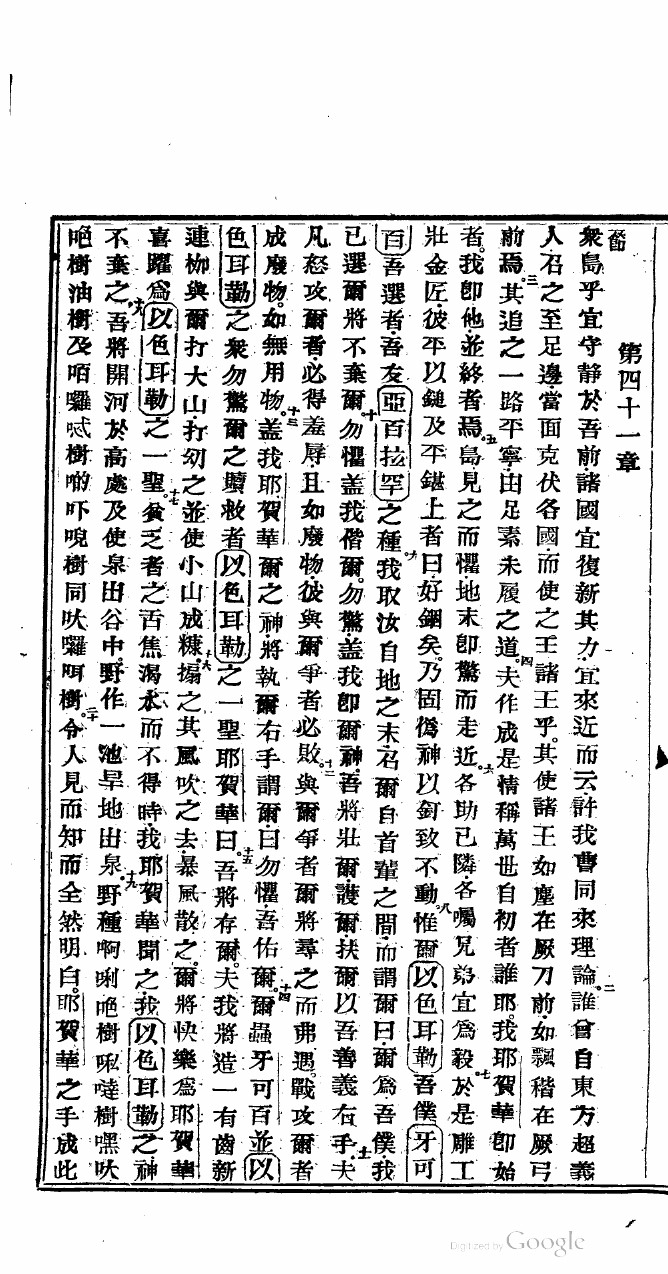 第四十一章
節
衆島乎宜守静於吾前諸國宜復新其力宜來近而云許我曹同來理論誰曾自東方超義
人召之至足邊當面克伏各國而使之王諸王乎其使諸王如塵在厥刀前如飄稭在厥弓
前焉其追之一路平寧由足素未履之道夫作成是情稱萬世自初者誰耶我耶賀華卽始
者我卽他並終者焉島見之而懼地末卽驚而走近各助己隣各囑兄弟宜爲毅於是雕工
壯金匠彼平以鎚及平鏈上者曰好錮矣乃固僞神以釘致不動惟爾以色耳勒吾僕牙可
百吾選者吾友亞百拉罕之種我取汝自地之末召爾自首輩之間而謂爾曰爾爲吾僕我
已選爾將不棄爾勿懼盖我偕爾勿驚盖我卽爾神吾將壯爾護爾扶爾以吾善義右手夫
凡怒攻爾者必得羞辱且如廢物彼與爾爭者必敗與爾爭者爾將尋之而弗遇戰攻爾者
成廢物如無用物盖我耶賀華爾之神將執爾右手謂爾曰勿懼吾佑爾爾蟲牙可百並以
色耳勒之衆勿驚爾之贖救者以色耳勒之一聖耶賀華曰吾將存爾夫我將造一有齒新
連枷與爾打大山打幼之並使小山成糠搧之其風吹之去暴風散之爾將快樂爲耶賀華
喜躍爲以色耳勒之一聖貧乏者之舌焦渴水而不得時我耶賀華聞之我以色耳勒之神
不棄之吾將開河於高處及使泉出谷中野作一池旱地出泉野種啊唎吧樹㖠噠樹嘿吠
吧樹油樹及咟囉樹啲吓唲樹同吠囉呵樹令人見而知而全然明白耶賀華之手成此
二
三
四
五
六
七
八
九
十
十一
十二
十三
十四
十五
十六
十七
十九
二十
Digitized by Google